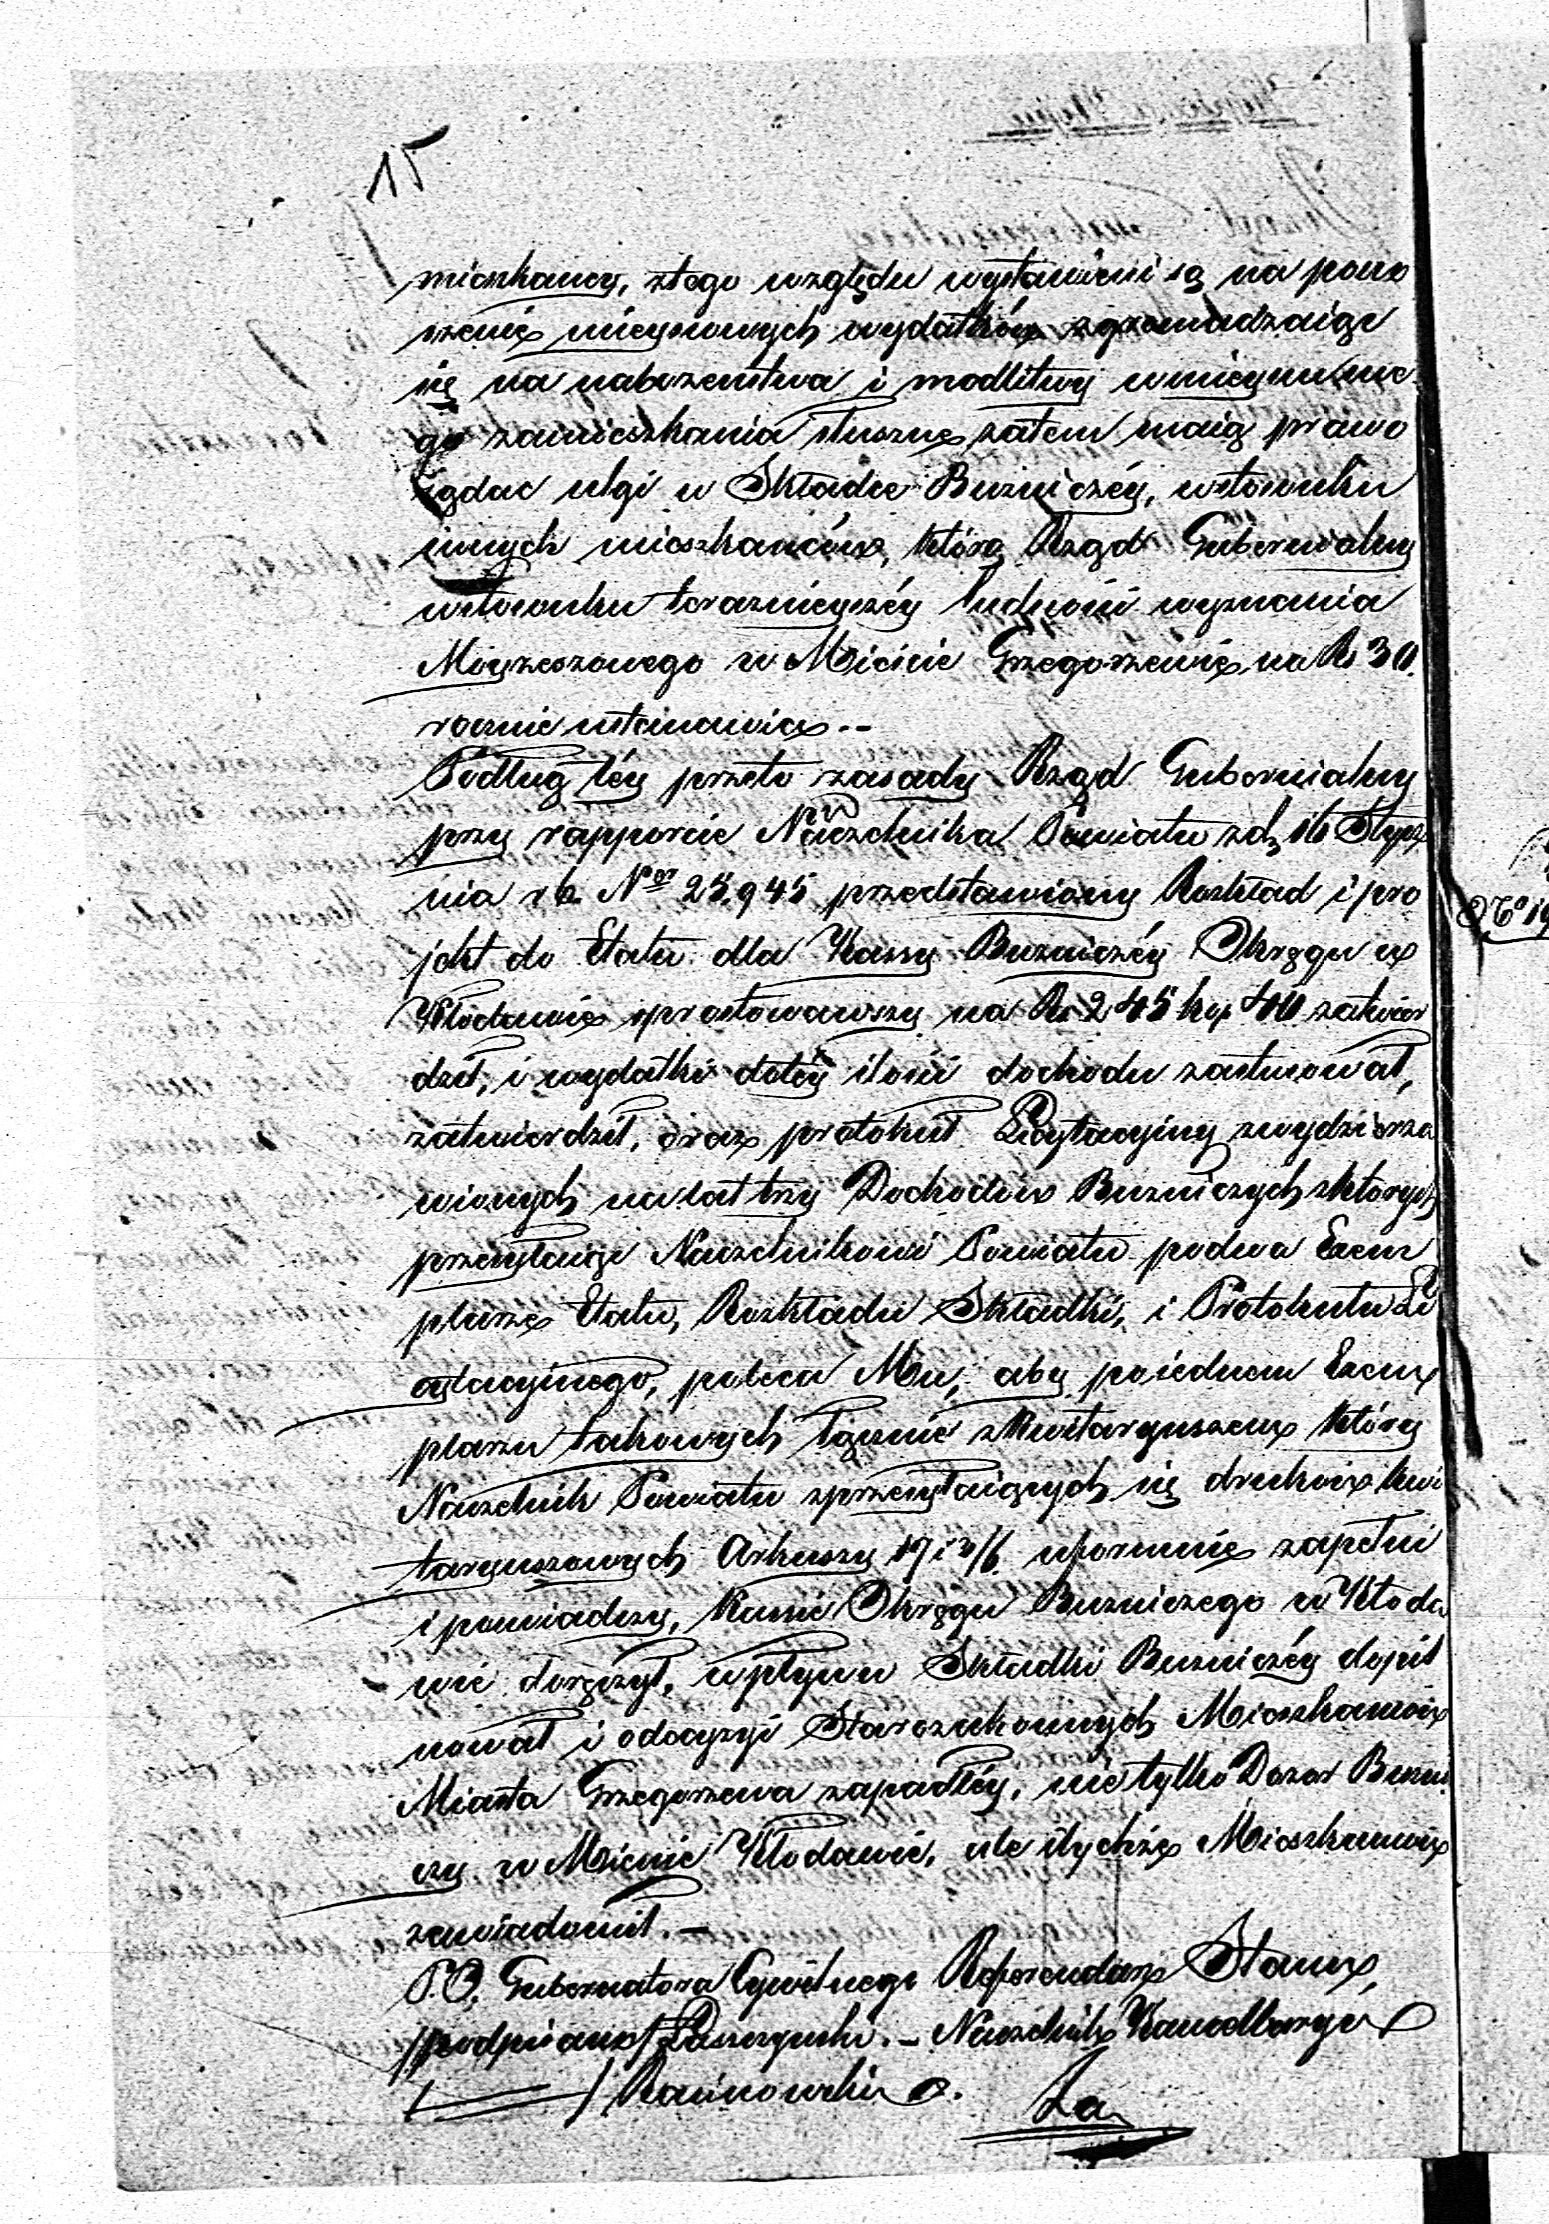 15
mieszkańcy, ztego względu wystawieni są na pono
szenie mieyscowych wydatków zgromadzaiąc
się na nabozenstwa i modlitwy w mieyscu swe
go zamieszkania słuszne zatem maią prawo
żądac ulgi w Składce Bużniczéy, wstosunku
innych mieszkańców, którą Rząd Gubernialny
wstosunku terazniéyszéy ludności wyznania
Moyżeszowego w Mieście Grzegorzewie na Rs 30.
rocznie ustanawia.--
Podług téy przeto zasady Rząd Gubernialny
przy rapporcie Naczelnika Powiatu zd. 16 Stycz
nia r b. Nor 25,945 przedstawiony Rozkład i pro
jekt do Etatu dla Kassy Bużniczéy Okręgu w
Kłodawie sprostowawszy na Rs 245 kop 40 zatwier
dził, i wydatki dotéy ilości dochodu zastosował,
zatwierdził, oraz protokuł Licytacyiny zwydzierża
wionych na lat trzy Dochodów Bużniczych z których
przesyłaiąc Naczelnikowi Powiatu podwa Exem
plarze Etatu, Rozkładu Składki, i Protokułu Li
cytacyinego, poleca Mu, aby pojednem Exem
plarzu takowych łącznie z Kwitaryuszem który
Naczelnik Powiatu zprzesyłaiących się druków kwi
taryuszowych Arkuszy 17 i 2/6 uformuie zapełni
i poswiadczy, Kassie Okręgu Bużniczego w Kłoda
wie doręczył, wpływu Składki Bużniczéy dopil
nował i odecyzyi Starozakonnych Mieszkańców
Miasta Grzegorzewa zapadłéy, nie tylko Dozor Bużni
czy w Mieście Kłodawie, ale itychże Mieszkańców
zawiadomił.--
P.O. Gubernatora Cywilnego Referendarz Stanu
/podpisano/ Łaszczyński. -- Naczelnik Kancellaryi
/ = / Racinowski.
Za